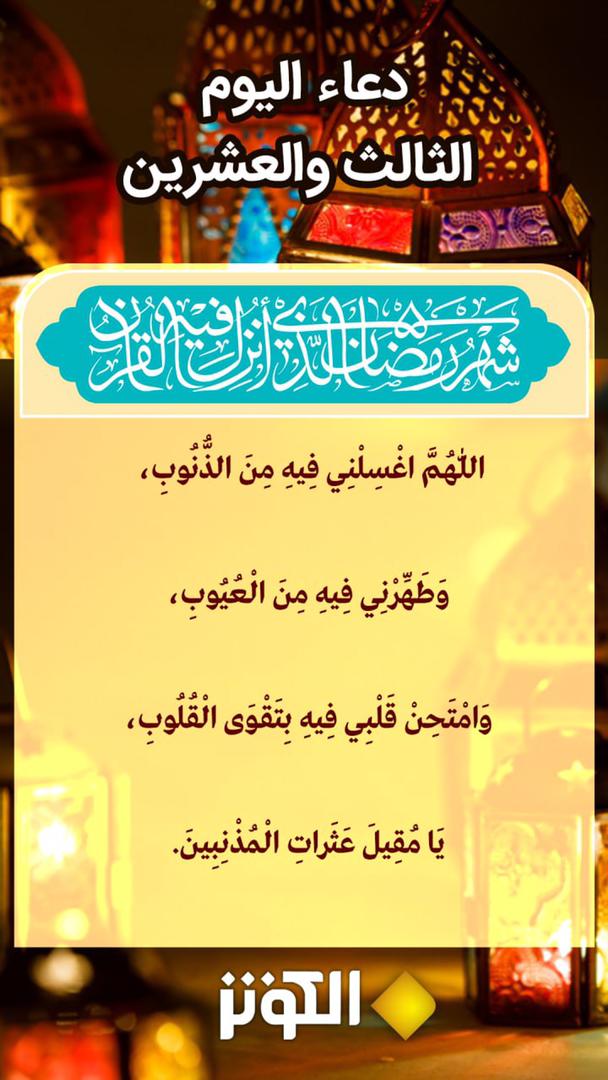 دعاء اليوم
الثالث والعشرين
شَهْرُ رَمَضَانَ الَّذِي أُنْزِلَ فِيهِ القُرْآنُ
اللَّهُمَّ اغْسِلْنِي فِيهِ مِنَ الذُّنُوبِ،
وَطَهِّرْنِي فِيهِ مِنَ الْعُيُوبِ،
وَامْتَحِنْ قَلْبِي فِيهِ بِتَقْوَى الْقُلُوبِ،
يَا مُقِيلَ عَثَراتِ الْمُذْنِبِينَ.
الكوثر